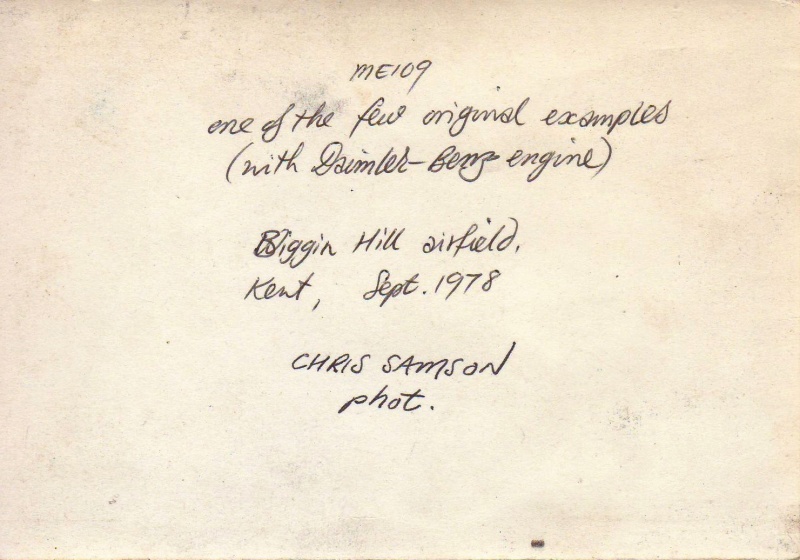 ME109
one of the few original examples
(with Daimler-Benz engine)
Biggin Hill airfield,
Kent, Sept. 1978
CHRIS SAMSON
phot.